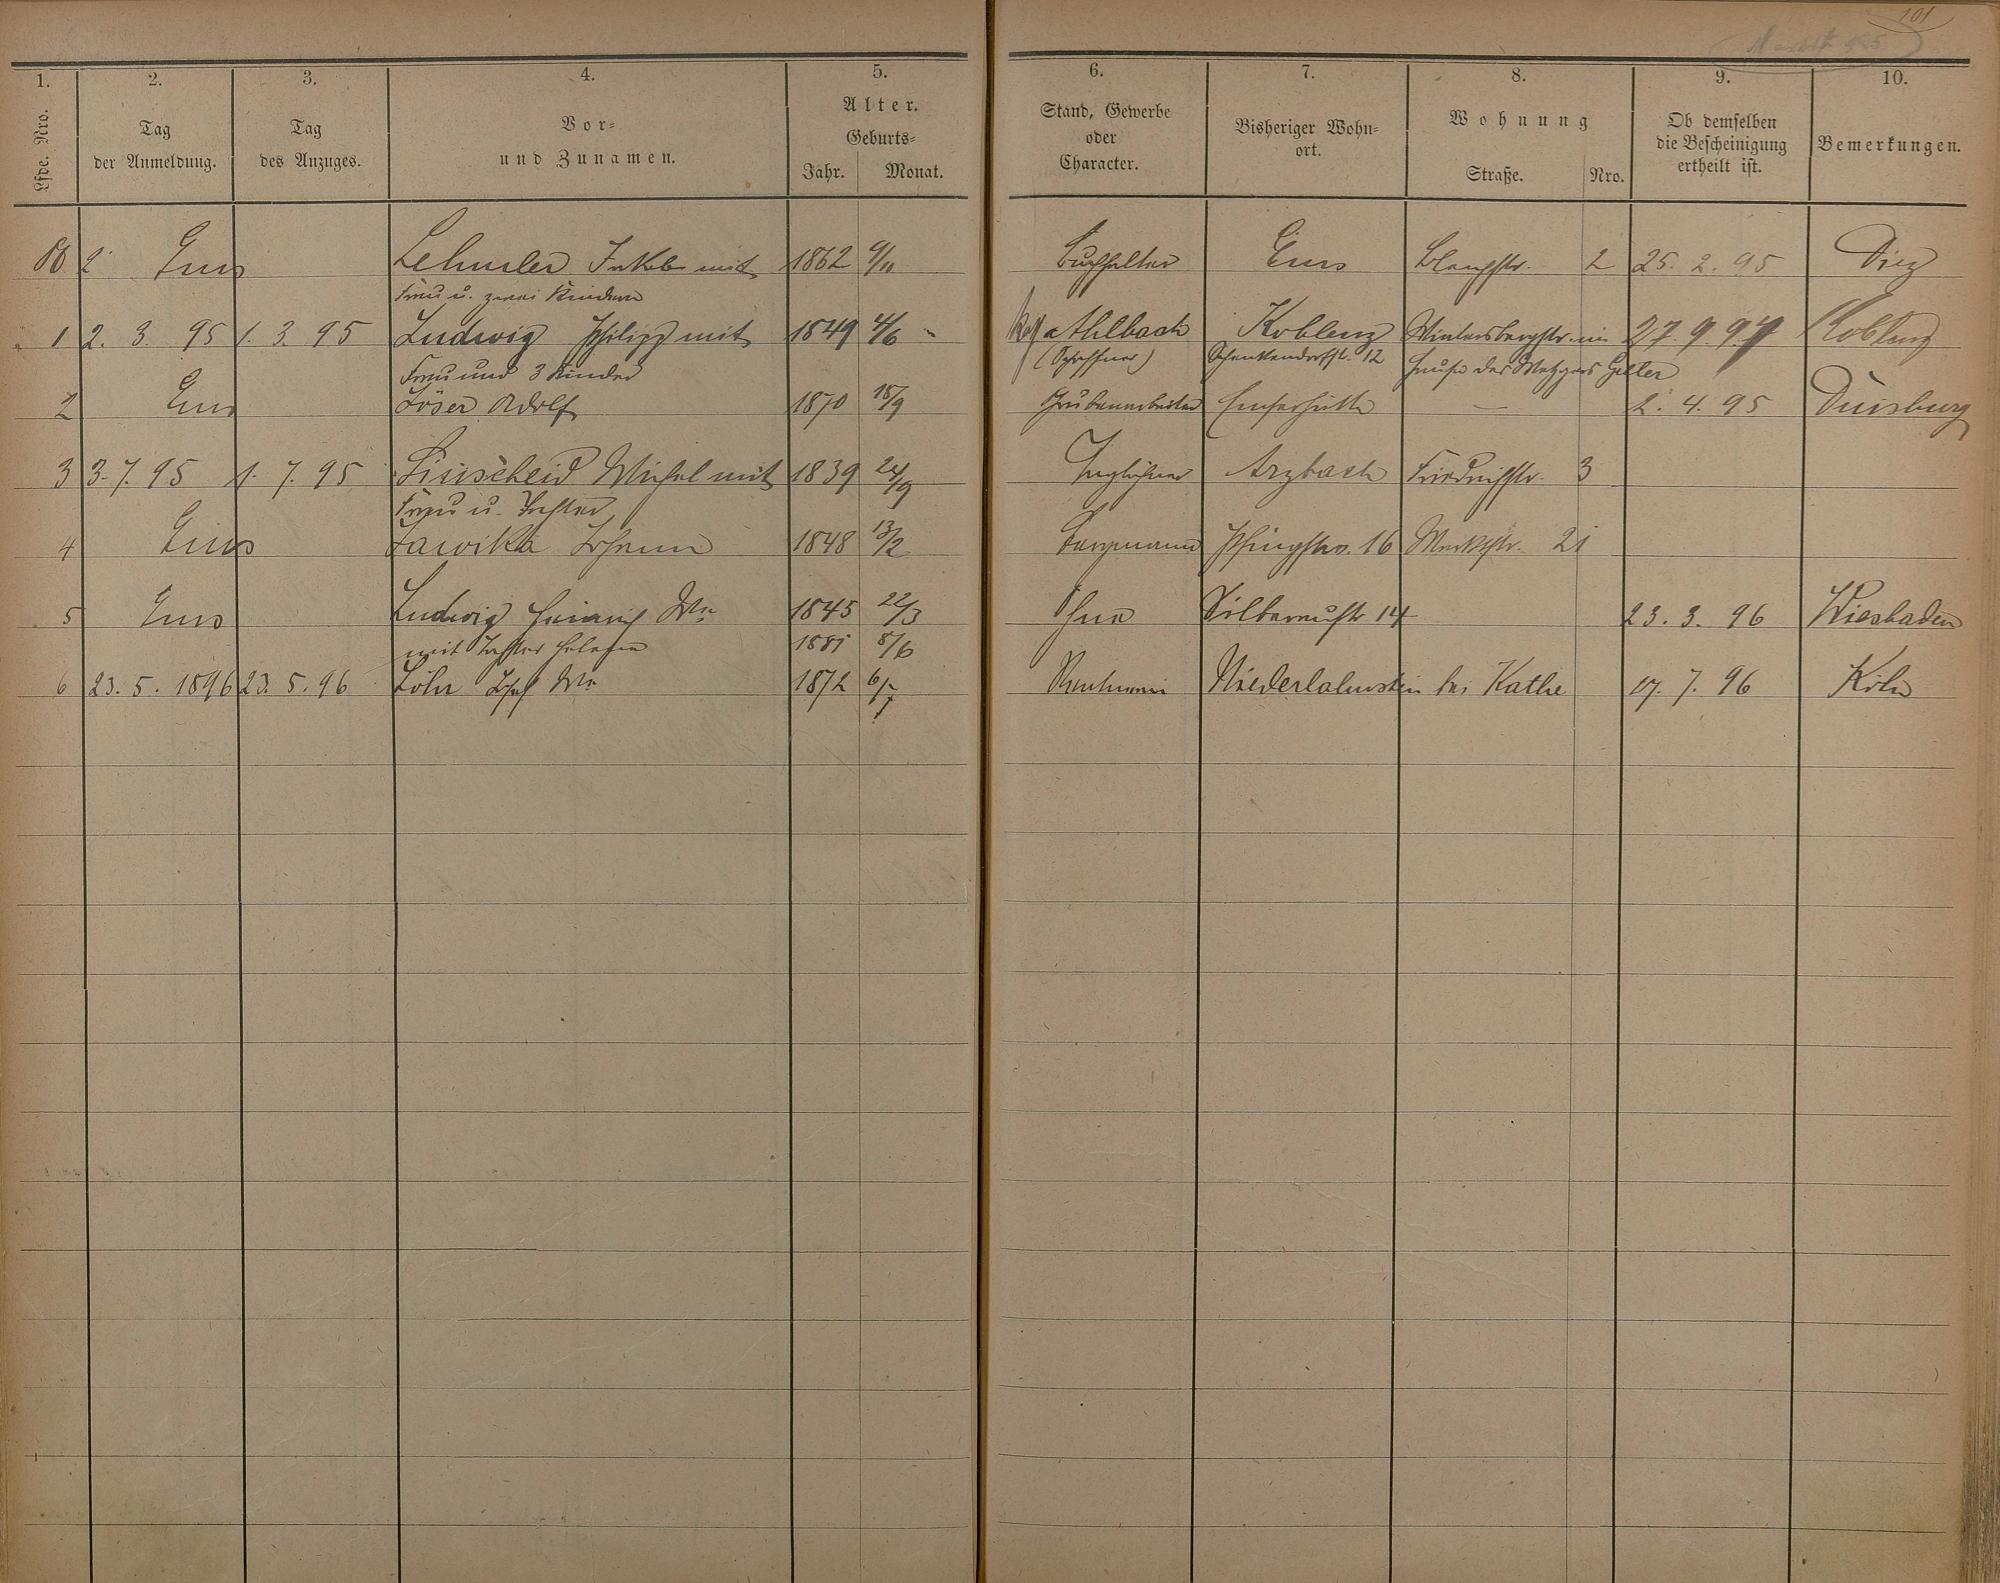 101
1. 2. 3. 4. 5. 6. 7. 8. 9. 10.
Lfde. Nro.
Tag der Anmeldung.
Tag des Anzuges.
Vor= und Zunamen.
Alter.
Geburts=
Jahr. Monat.
Stand, Gewerbe oder Character.
Bisheriger Wohn=ort.
Wohnung
Straße. Nro.
Ob demselben die Bescheinigung ertheilt ist.
Bemerkungen.
Ems Jakob mit 1862 9/11 Buchhalter Ems 2 25. 2. 95 Diez
Frau u. zwei Kindern
1 2. 3. 95 1. 3. 95 Ludwig Philipp mit 1849 4/6 a Ahlbach Koblenz Wintersbergstr. im 27. 9. 97 Koblenz
Frau und 3 Kinder (Schaffner) Schenkendorfstr. 12 Hause des Metzgers Geller
2 Ems Löser Adolf 1870 18/9 Grubenarbeiter Emserhütte — 2. 4. 95 Duisburg
3 3. 7. 95 1. 7. 95 Linscheid Michel mit 1839 24/9 Taglöhner Arzbach Friedrichstr. 3
Frau u. Tochter
4 Ems Lawika Johann 1848 13/2 Bergmann Pfingstws. 16 21
5 Ems Ludwig Heinrich Ww 1845 22/3 Silberaustr 14 23. 3. 96 Wiesbaden
mit Tochter Helene 1881 8/6
6 23. 5. 1896 23. 5. 96 Löhr Josef Ww 1872 6/7 Niederlahnstein bei Kathe 17. 7. 96 Köln